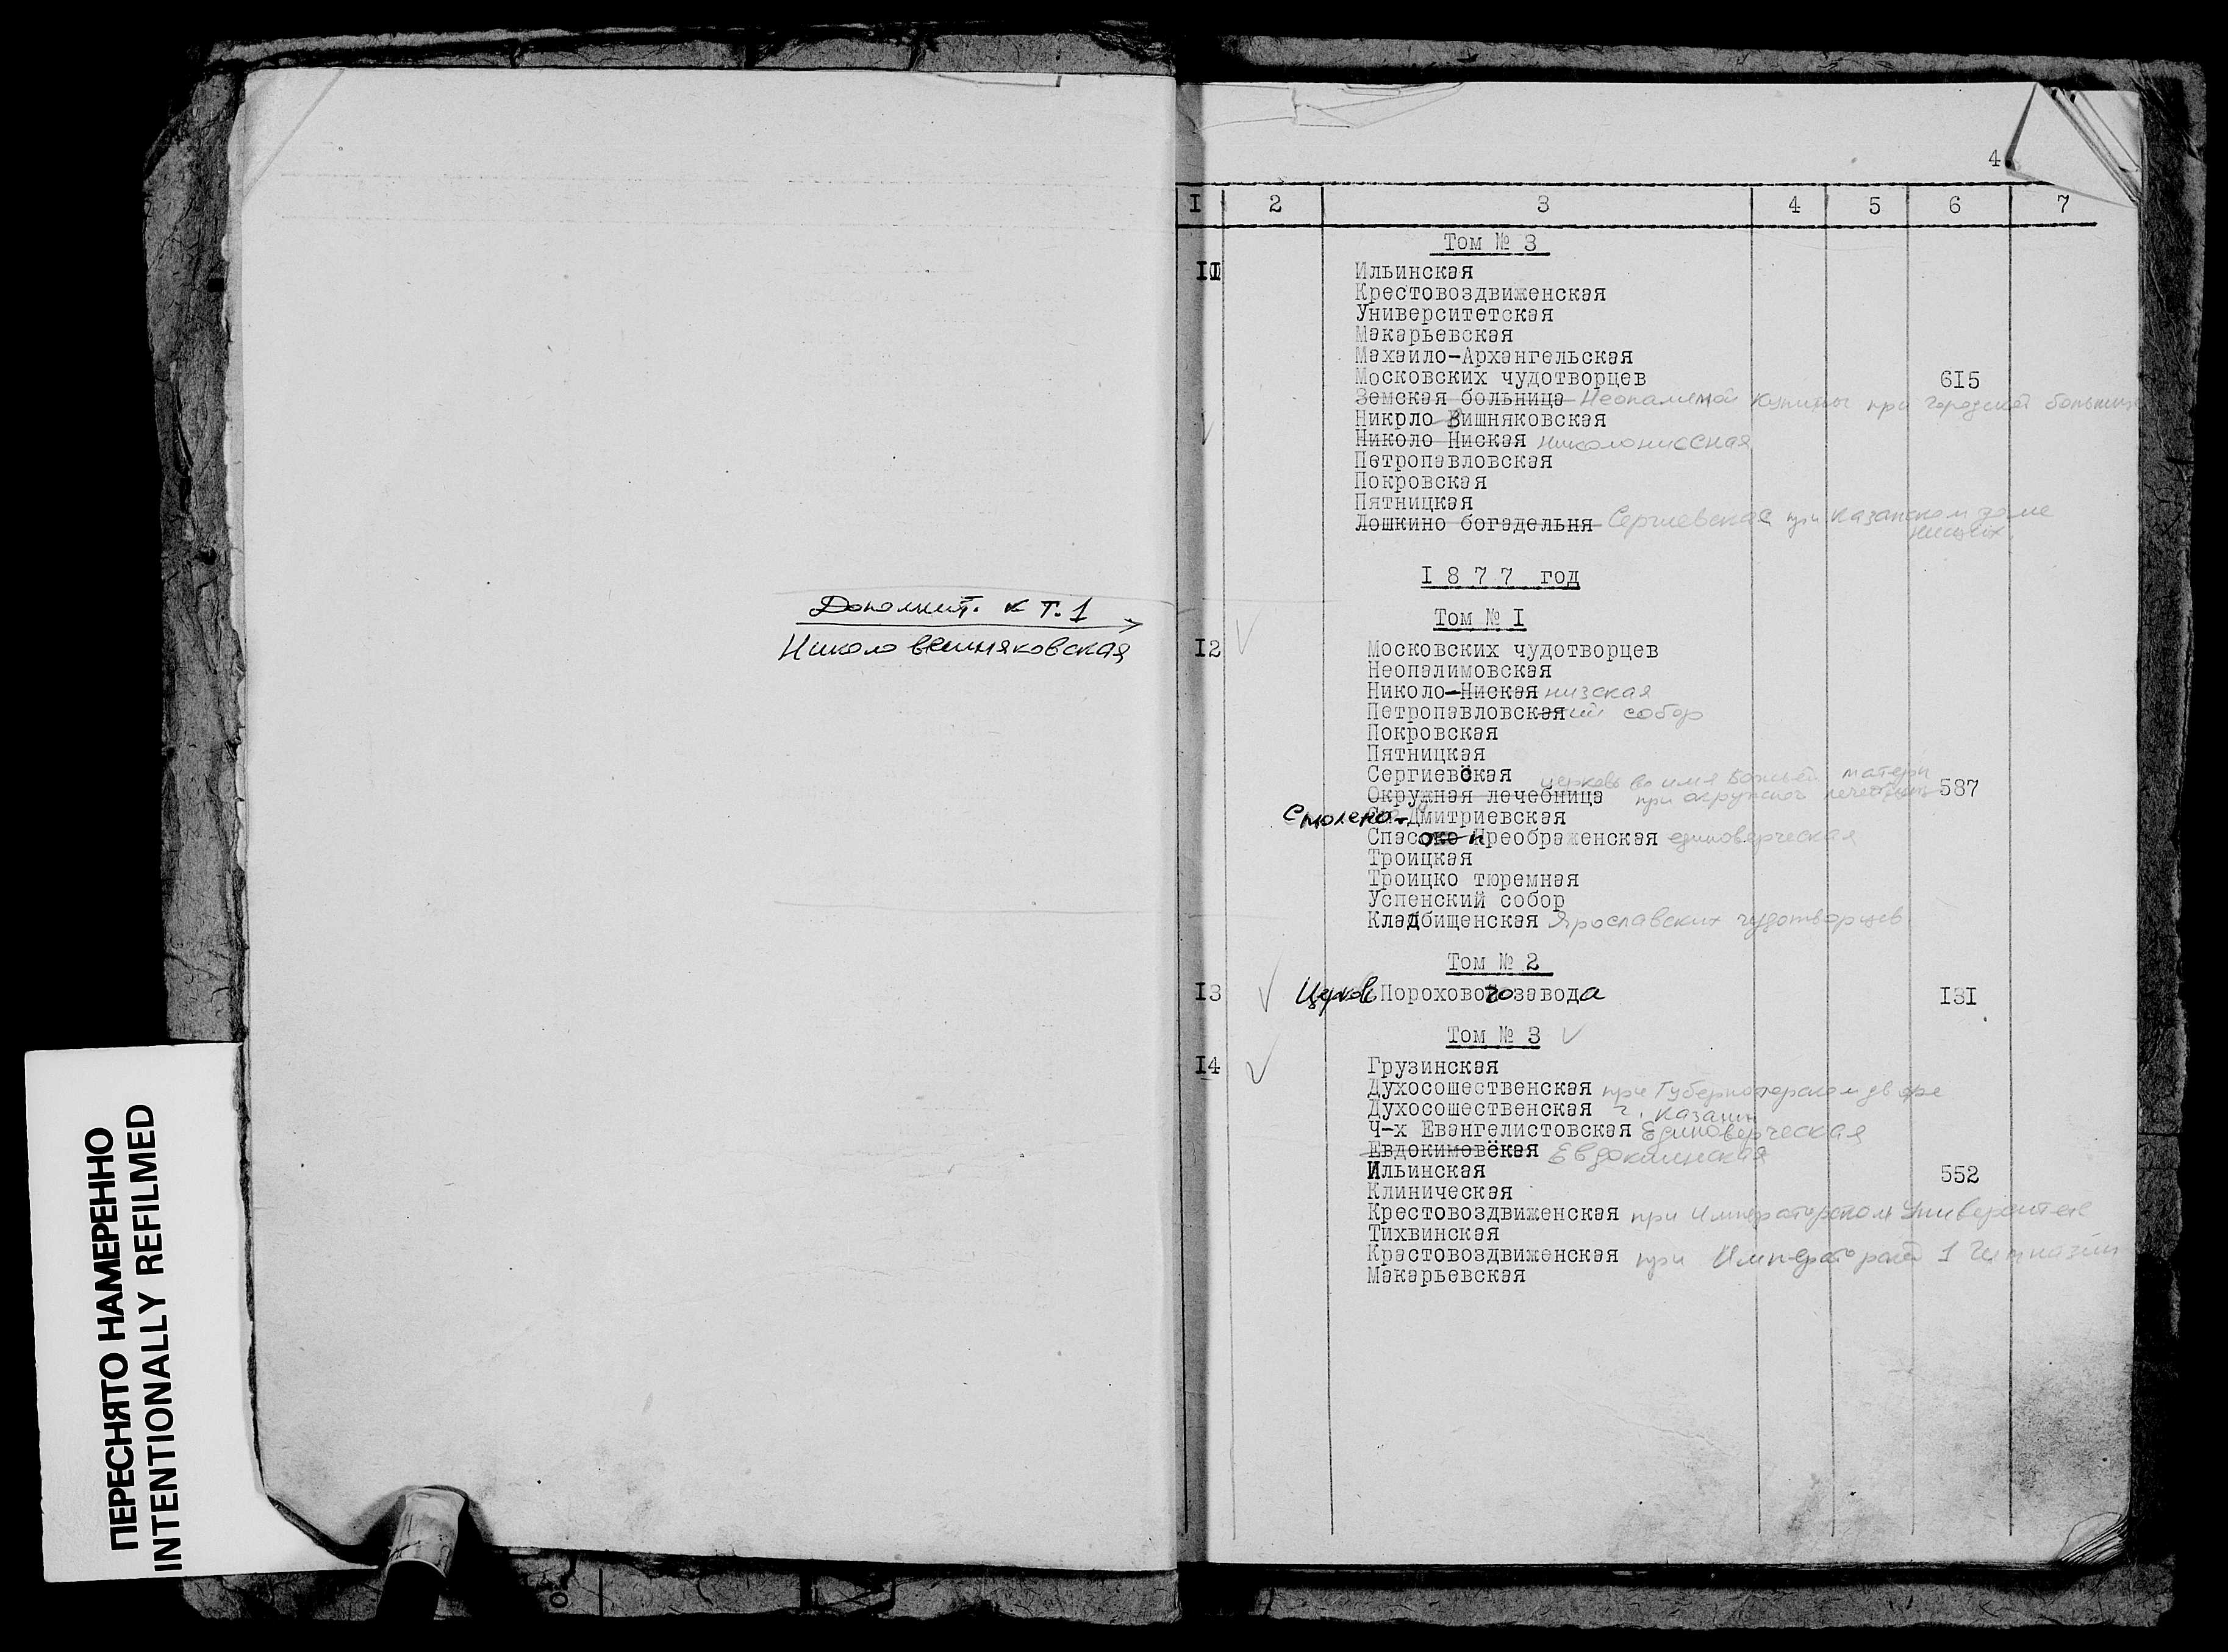 Дополнит. к т. 1
Николо вешняковская
ПЕРЕСНЯТО НАМЕРЕННО
INTENTIONALLY REFILMED
4
I 2 3 4 5 6 7
Том № 3
II Ильинская
Крестовоздвиженская
Университетская
Макарьевская
Махаило-Архангельская
Московских чудотворцев 6I5
Земская больница Неопалимой Купины при городской больнице
Никрло Вишняковская
Николо Ниская Николонисская
Петропавловская
Покровская
Пятницкая
Лошкино богадельня Сергиевская при казанском доме
нищих
I 8 7 7 год
Том № I
I2 Московских чудотворцев
Неопалимовская
Николо-Ниская низская
Петропавловская ий собор
Покровская
Пятницкая
Сергиевская церковь во имя Божьей матери
Окружная лечебница при окружной лечебнице 587
Смолено-Дмитриевская
Спасско Преображенская единоверческая
Троицкая
Троицко тюремная
Успенский собор
Кладбищенская Ярославских чудотворцев
Том № 2
I3 Церковь Порохового завода I3I
Том № 3
I4 Грузинская
Духосошественская при Губернаторском дворе
Духосошественская г. Казани
Ч-х Евангелистовская Единоверческая
Евдокимовская Евдокиинская
Ильинская 552
Клиническая
Крестовоздвиженская при Императорском Университете
Тихвинская
Крастовоздвиженская при Император 1 Гимназии
Макарьевская